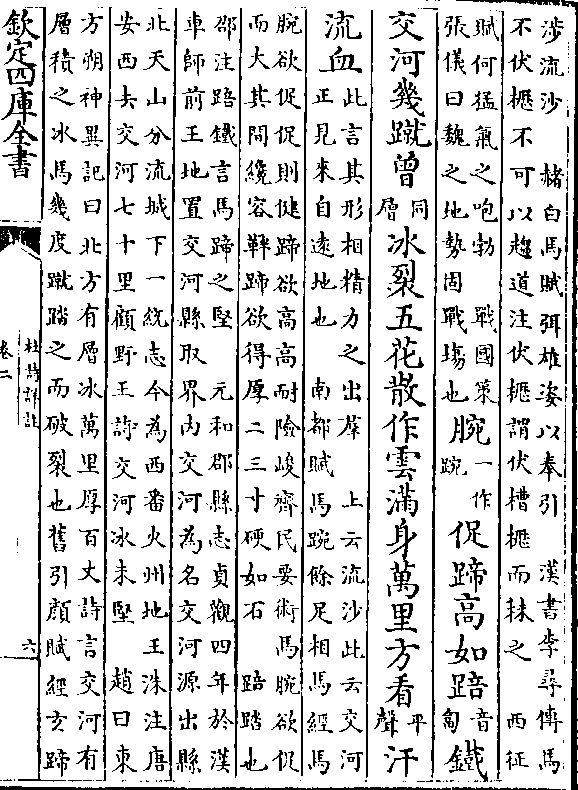 涉流沙　赭白馬賦弭雄姿以奉引　漢書李尋傳馬
不伏櫪不可以趨道注伏櫪謂伏槽櫪而秣之　西征
賦何猛氣之咆勃　戰國策
張儀曰魏之地勢固戰塲也
腕
一作
踠
促蹄高如踣
音
匐
鐵
交河幾蹴曾
同
層
冰裂五花散作雲滿身萬里方看
平
聲
汗
流血
此言其形相精力之出羣　上云流沙此云交河
正見來自遠地也　南都賦馬踠餘足相馬經馬
腕欲促促則健蹄欲高高耐險峻齊民要術馬腕欲促
而大其間纔容靽蹄欲得厚二三寸硬如石　踣踏也
邵注踣鐵言馬蹄之堅　元和郡縣志貞觀四年於漢
車師前王地置交河縣取界内交河為名交河源出縣
北天山分流城下一統志今為西番火州地　王洙注唐
安西去交河七十里顧野王詩交河冰未堅　趙曰東
方朔神異記曰北方有層冰萬里厚百丈詩言交河有
層積之冰馬幾度蹴踏之而破裂也舊引顔賦經玄蹄
欽定四庫全書
杜詩詳註
卷二
六